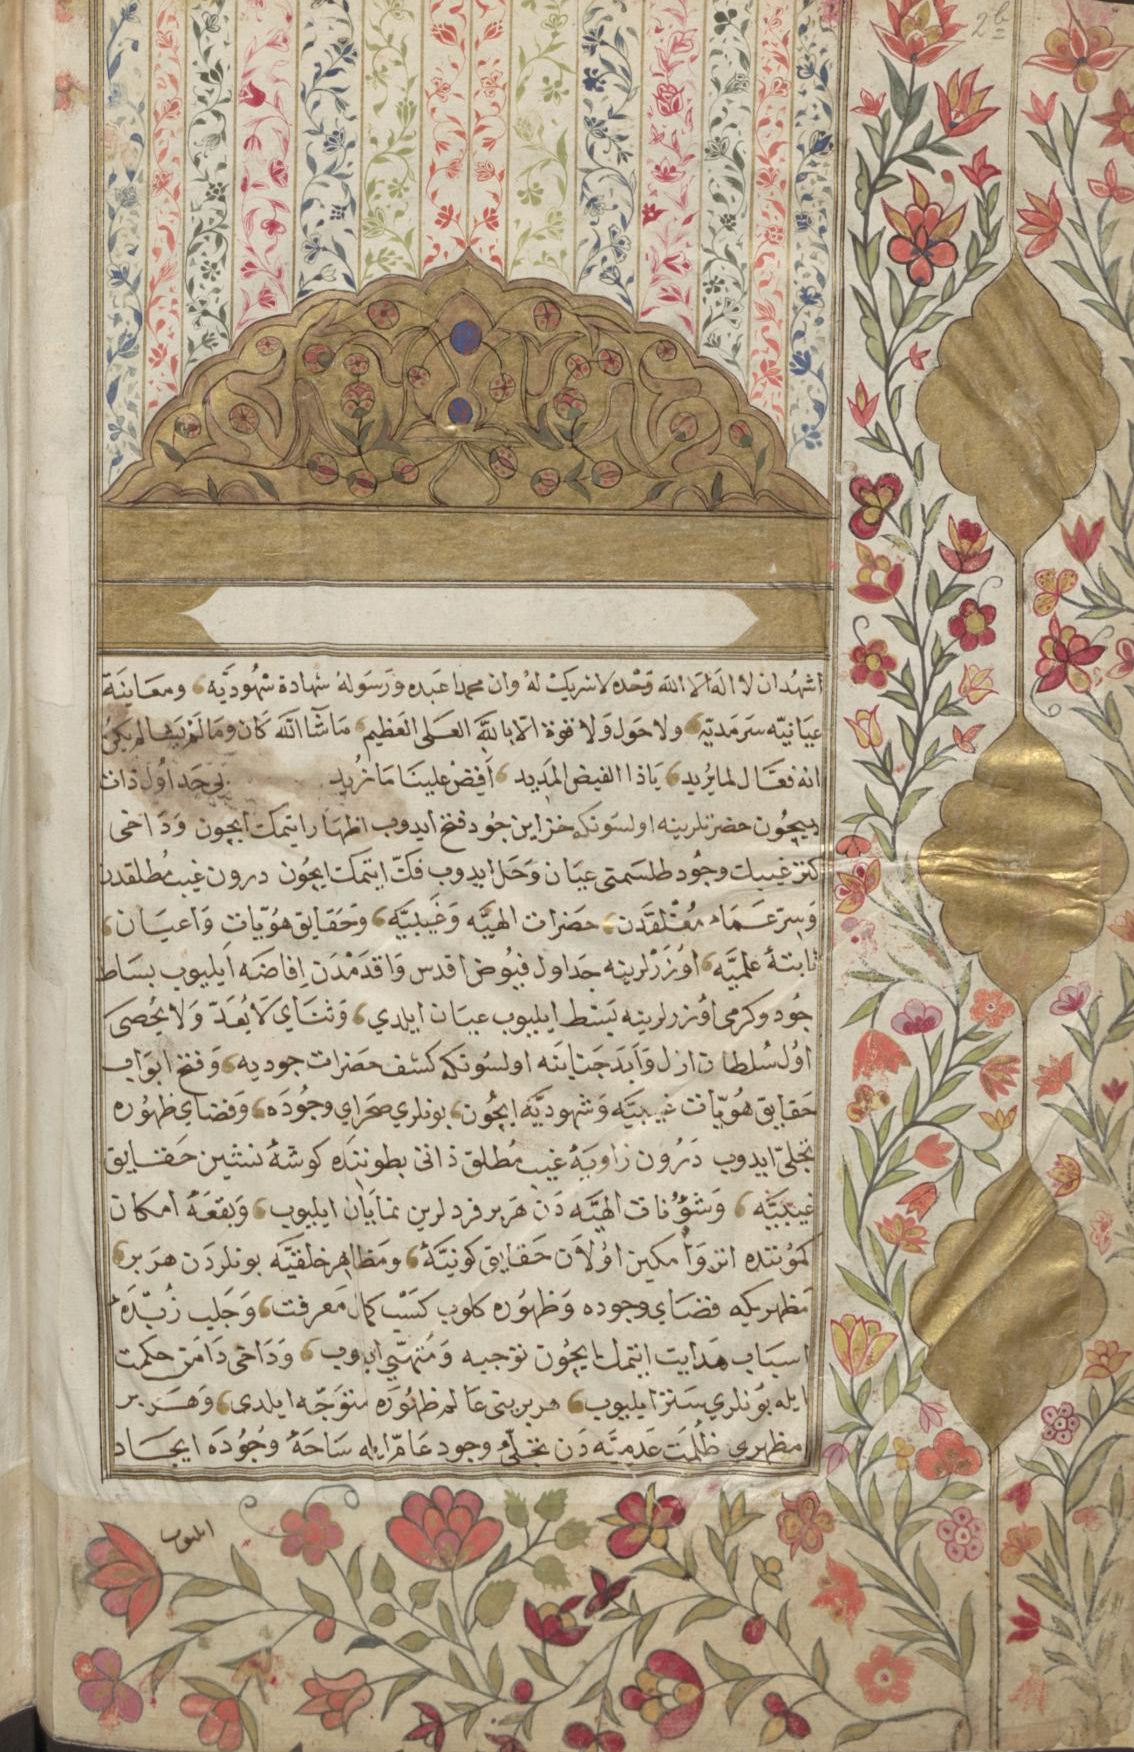 2b
اشهد ان لا اله الا الله وحده لا شريك له وان محمدا عبده ورسوله شهادة شهوديّه، ومعاينة
عيانيّه سرمديّه، ولا حول ولا قوة الّا بالله العلى العظيم، ماشآ الله كان وما لم يشا لم يكن
انه فعال لما يريد، ياذا الفيض المديد، أفض علينا ما نريد بى حد اول ذات
بيچون حضرتلرينه اولسونكه خزاين جود فتح ايدوب اظهار ايتمك ايچون ودَاخى
كنز غيبك وجُود طلسمتى عيان وحل ايدوب فكّ ايتمك ايچون درون غيب مُطلقدن
وسرّ عماء مغْلقدَن، حضرات الهيّه وغَيبيّه، وحقايق هُويّات وَاعيان،
ثابتهٔ علميّه، اوزرْلرينه جداول فيُوض اقدس واقدمْدَن اِفاضَه اَيليوب بساط
جُود وكرمى اوُزرلرينه بَسْط ايليوب عيان ايلدي، وثناى لا يُعدّ ولا يُحصى
اوُل سُلطان ازل وَاَبَد جَنابنَه اولسُونكه كشف حَضرات جوديه، وفتح ابوَاب
حَقايق هُويّات غيبيّه وشهوديّه ايچُون، بونلري صحراي وجُودَه، وفضاي ظهُوره
تجلّى ايدوب دَرُون زاويهٔ غيب مُطلق ذاتى بطوننده كوشهٔ نشين حَقايق
غيبيّه، وَشؤنات الهيّه دَن هر بر فرد لرين نمايَان ايليوب، وبقعَهٔ امكان
كموُننده انزوَا مكين اوُلاَن حَقايق كونيّهٔ، ومَظاهر خلقيّه بونلردَن هر بر،
مَظهريكه فضاي وجوده وَظهُوره كلوب كسْب كمال مَعرفت، وَجَلب زُبدَهٔ
اسبَاب هدَايت ايتمك ايچُون توجيه وَمُتَهيّئ ايدوب، وَدَاخى دَامَن حكمت
ايله بُونلري سَتر ايليوب، هر برينى عالم ظهُورَه متوَجّه ايلدى، وَهَر بر
مظهري ظُلمَت عَدميّه دَن تجلّئ وجود عَامّ ايله سَاحَهٔ وجُودَه ايجَاد
ايليوب